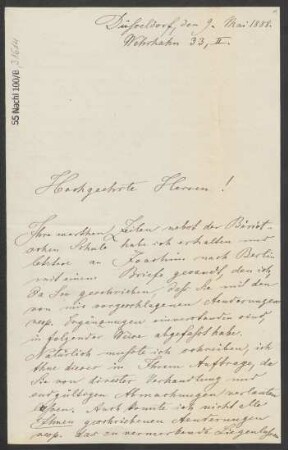 55 Nachl 100/B,
Düsseldorf, den 9. Mai 1888.
Wehrhahn 33, II.
Hochgeehrte Herren!
Ihre werthen Zeilen nebst der
Skala habe ich erhalten und
letztere an nach Berlin
mit einem Briefe gesandt, den ich,
da Sie geschrieben, daß Sie mit den
von mir vorgeschlagenen Aenderungen
resp. Ergänzungen einverstanden sind,
in folgender Weise abgefaßt habe.
Natürlich mußte ich schreiben, ich
thue dieses in Ihrem Auftrage, da
Sie von directer Verhandlung und
endgültigen Abmachungen verlauten
lassen. Auch konnte ich nicht alle
Ihnen geschriebenen Aenderungen
resp. das zu vermerkende